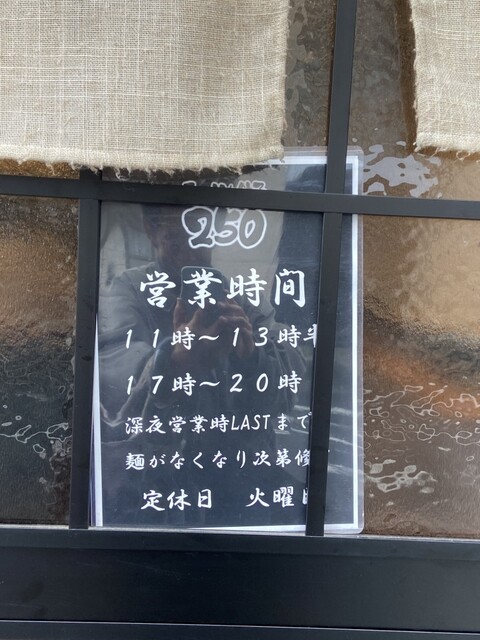 250
営業時間
11時〜13時半
17時〜20時
深夜営業時LASTまで
麺がなくなり次第修
定休日 火曜日